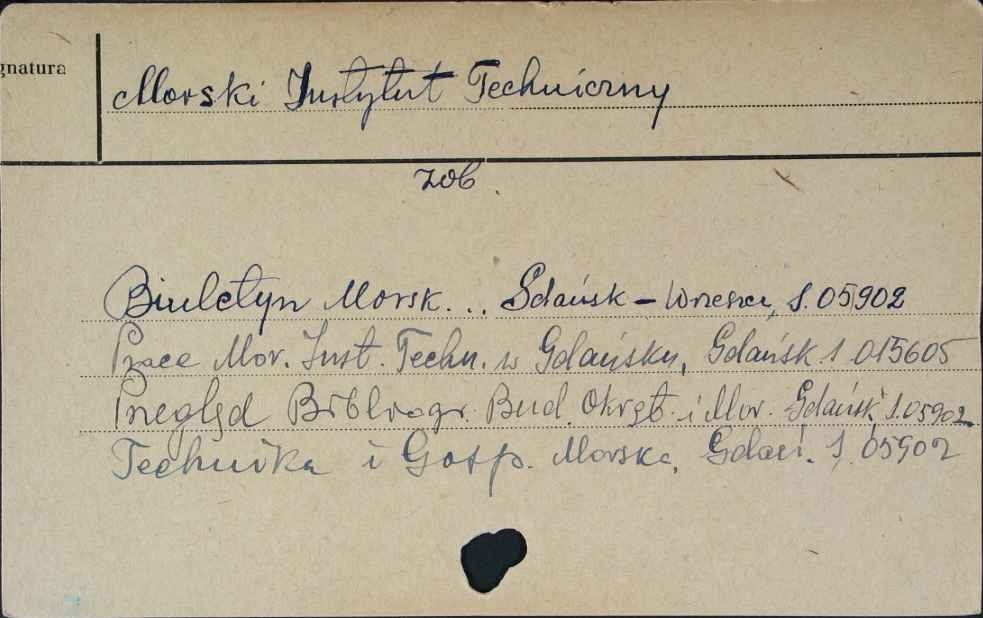 gnatura
Morski Instytut Techniczny
zob.
Biuletyn Morsk... Gdańsk - Wrzeszcz, S. 05902
Prace Mor. Inst. Techn. w Gdańsku, Gdańsk S. 015605
Przegląd Bibliogr. Bud. Okręt. i Mor. Gdańsk S. 05902
Technika i Gosp. Morska, Gdań. S. 05902